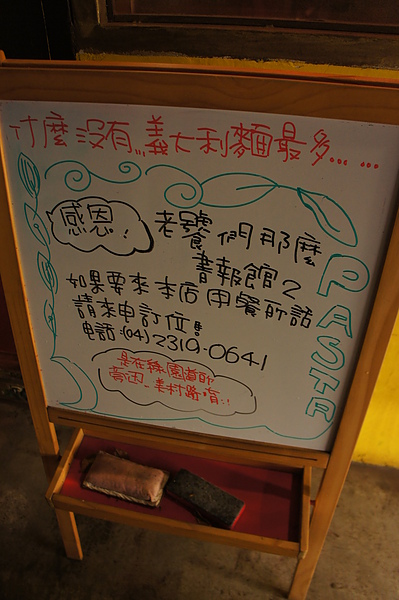 什麼沒有...義大利麵最多... ...
感恩!
老饕們那麼
書報館2
如果要來本店用餐所話
請來申訂位!!
電話:(04)2319-0641
是在綠園道那
旁邊、美村路唷!!
PASTA